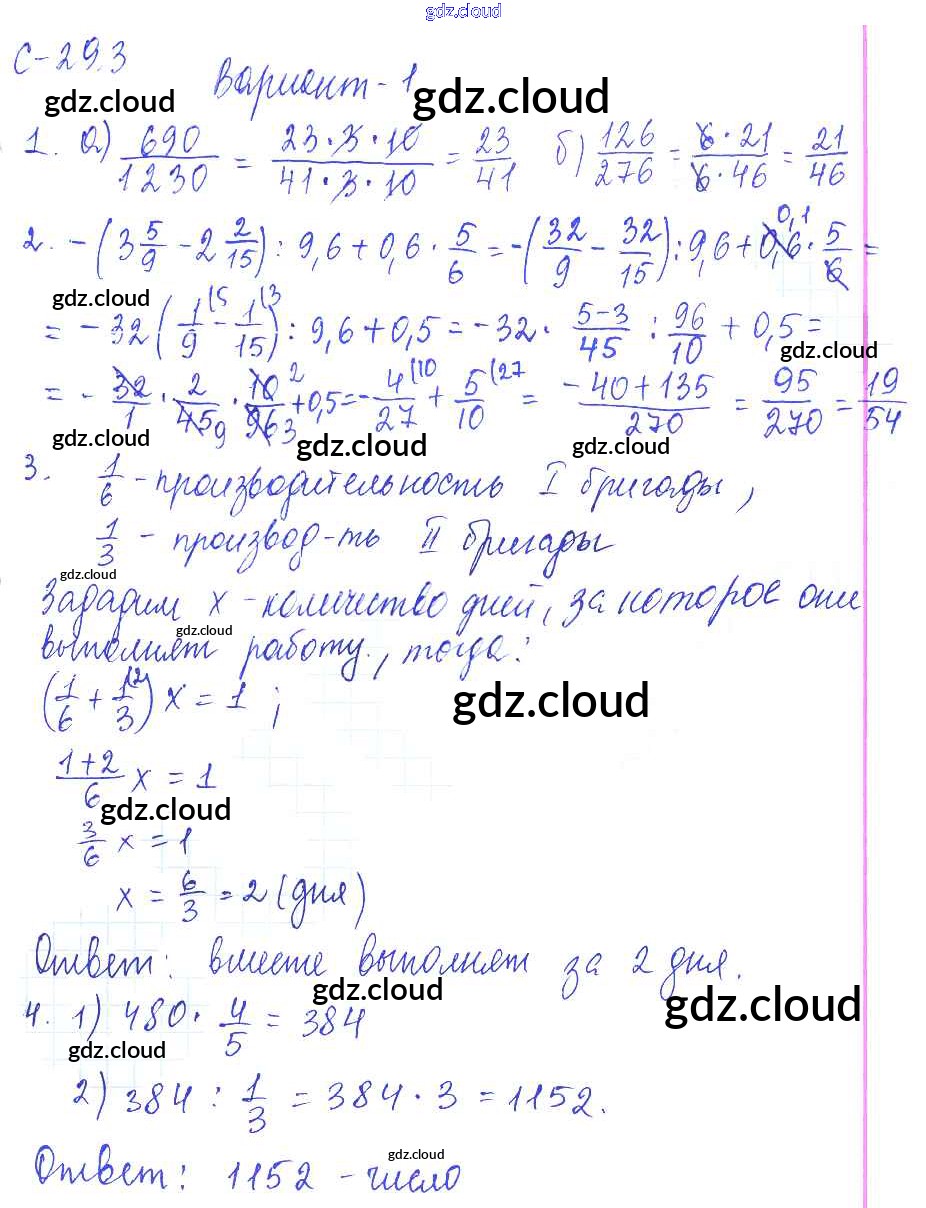 gdz.cloud
С-29.3
Вариант-1
gdz.cloud gdz.cloud
1. а) 690/1230 = 23·3·10/41·3·10 = 23/41 б) 126/276 = 6·21/6·46 = 21/46
2. -(3 5/9 - 2 2/15) : 9,6 + 0,6 · 5/6 = -(32/9 - 32/15) : 9,6 + 0,6 0,1 · 5/6 =
gdz.cloud
= -32 (1/9 (5 - 1/15 (3) : 9,6 + 0,5 = -32 · 5-3/45 : 96/10 + 0,5 =
gdz.cloud
= - 32/1 · 2/45 9 · 10 2/96 3 + 0,5 = - 4/27 (10 + 5/10 (27 = -40+135/270 = 95/270 = 19/54
gdz.cloud gdz.cloud gdz.cloud
3. 1/6 - производительность I бригады,
1/3 - производ-ть II бригады
gdz.cloud
Зададим х - количество дней, за которое они
gdz.cloud
выполнят работу, тогда:
(1/6 + 1/3 (2) х = 1 ;
gdz.cloud
1+2/6 х = 1
gdz.cloud
3/6 х = 1
х = 6/3 = 2 (дня)
Ответ: вместе выполнят за 2 дня.
gdz.cloud gdz.cloud
4. 1) 480 · 4/5 = 384
gdz.cloud
2) 384 : 1/3 = 384 · 3 = 1152.
gdz.cloud
Ответ: 1152 - число